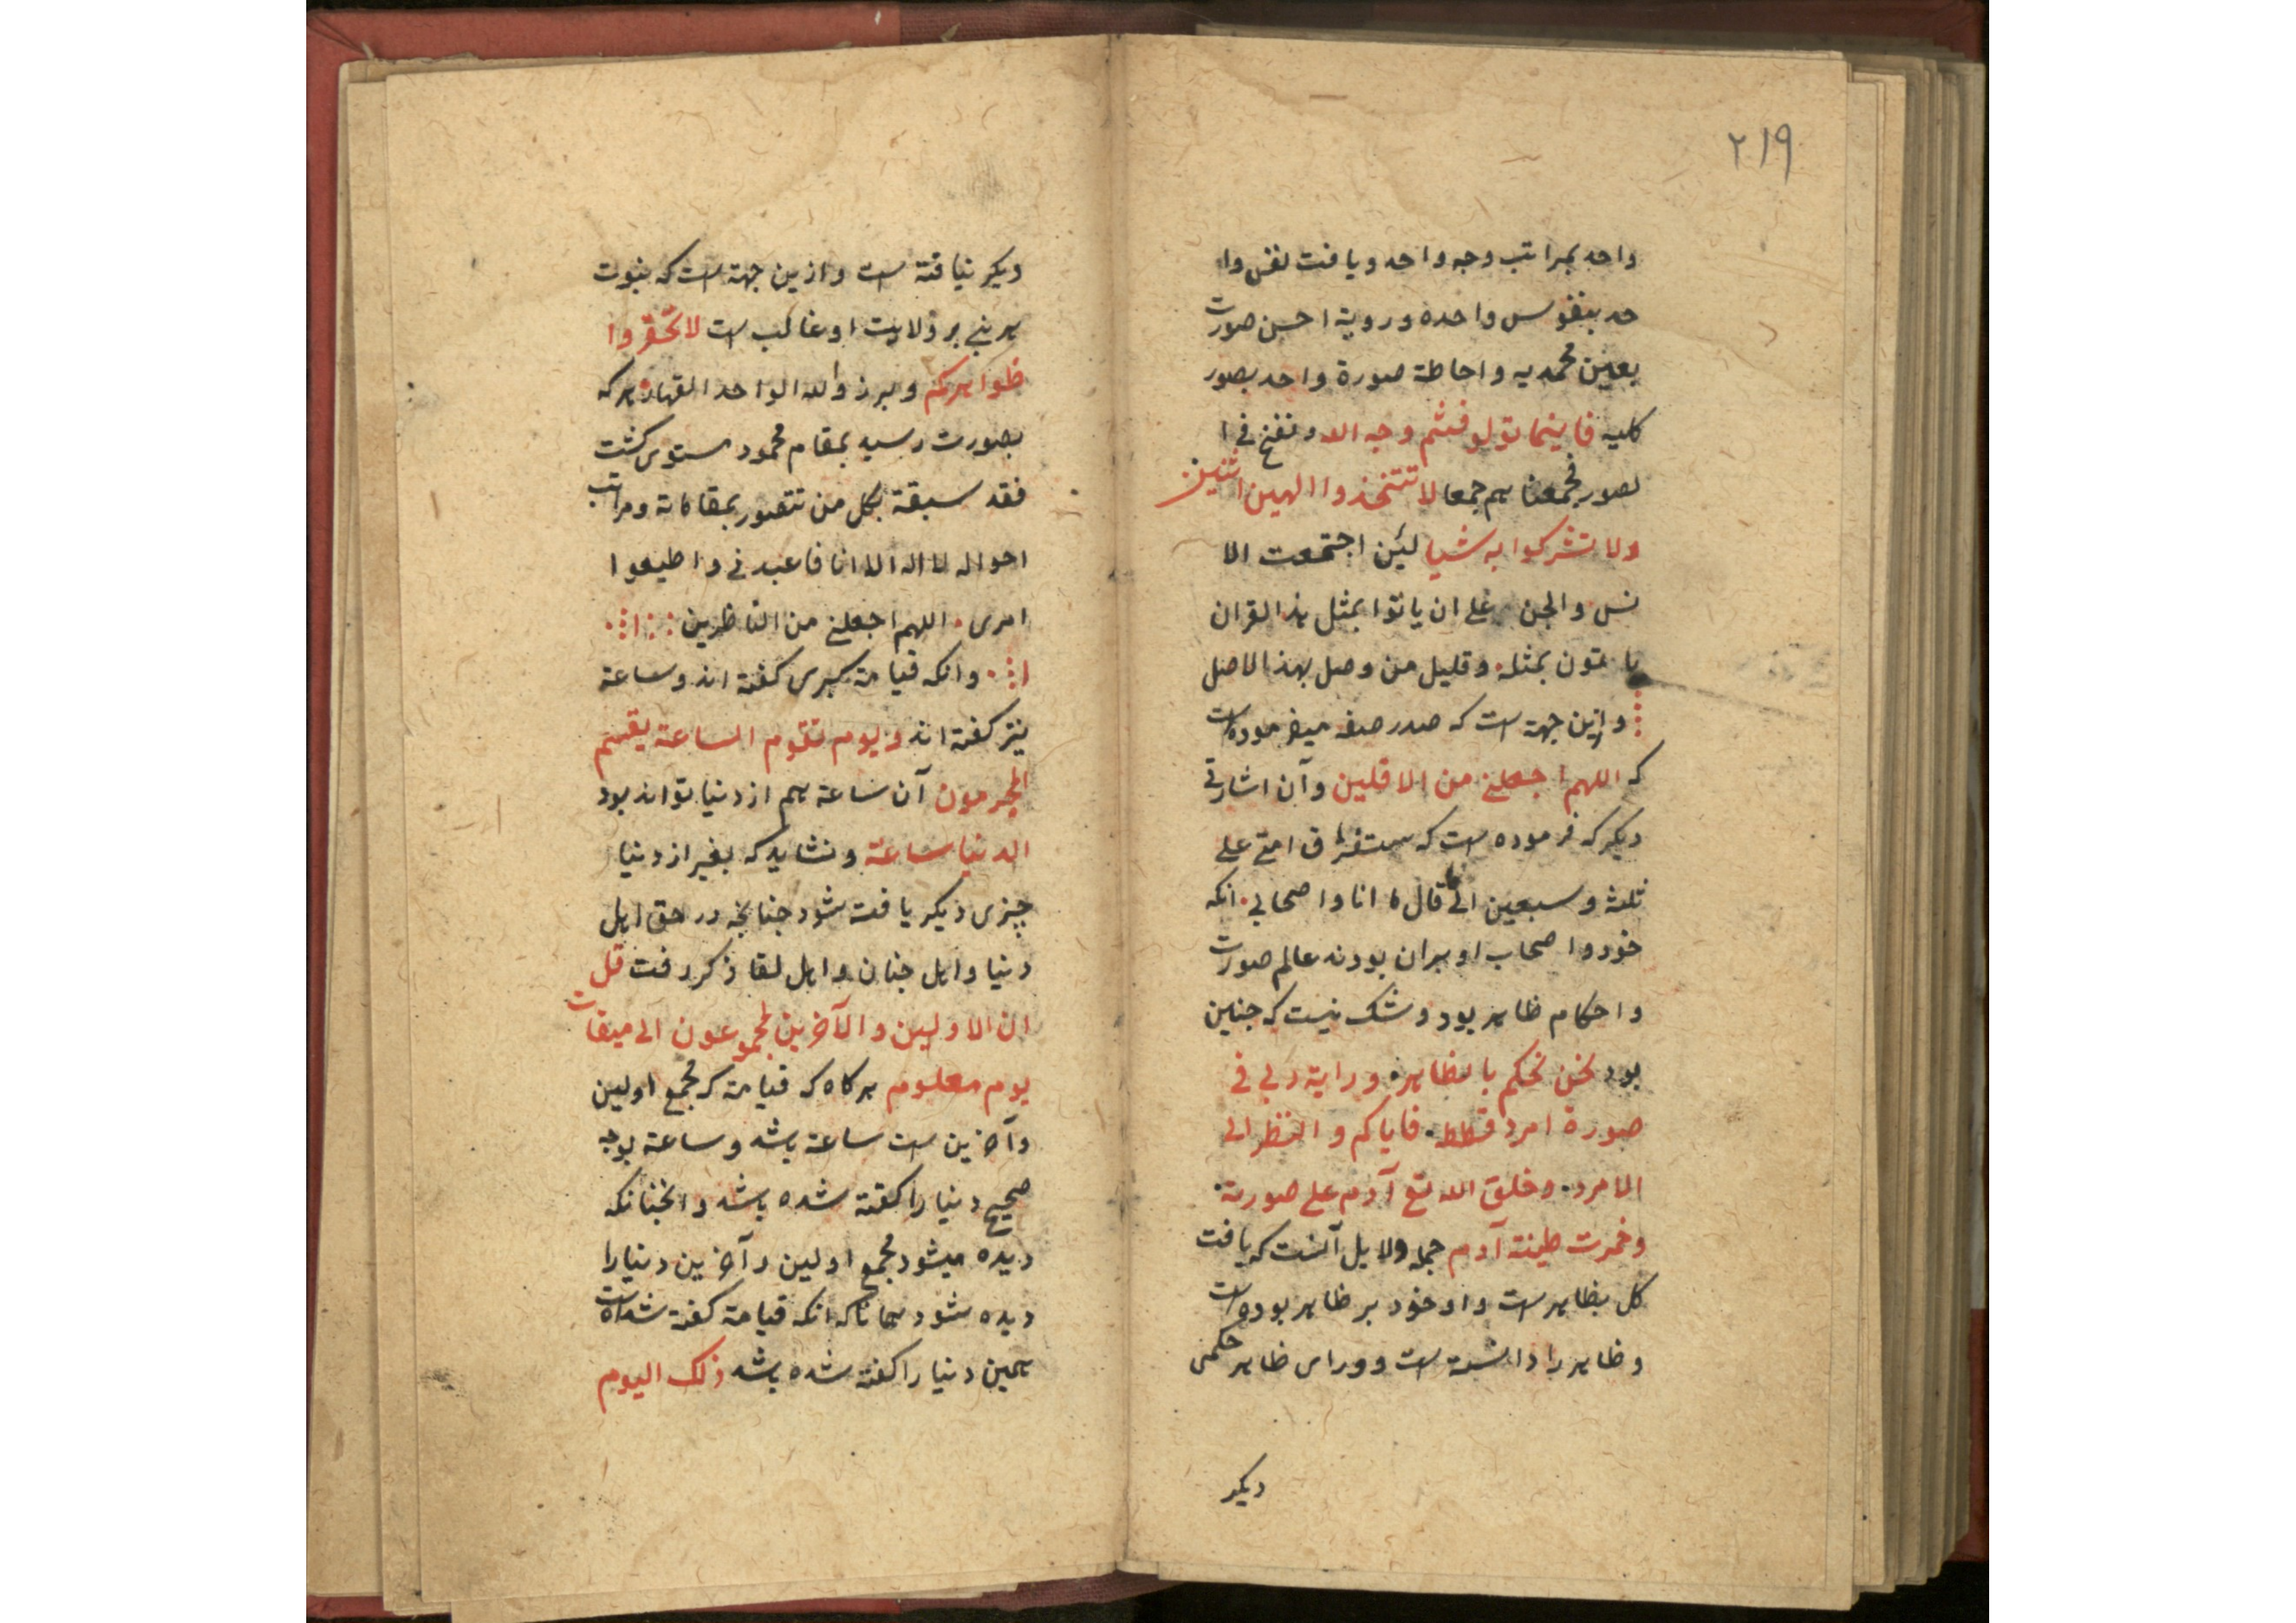 ٢١٩
واحد بمراتب وجه واحد و یافت نفس وا
حد بنفوس واحده و رویة احسن صورت
بعین محمدیه و احاطة صورة واحد بصور
کلیه فاینما تولو فثم وجه الله و نفخ فی ا
لصور فجمعنا هم جمعا لا تتخذوا الهین اثنین
ولا تشرکوا به شیا لئن اجتمعت الا
نس والجن علی ان یاتوا بمثل هذ القران
یا تون بمثله وقلیل من وصل بهذ الاصل
و ازین جهة است که صدر صفه میفرموده است
که اللهم اجعلنی من الاقلین و آن اشارتی
دیکر که فرموده است که ستفترق امتی علی
ثلثة و سبعین الی قال ما انا و اصحابی انکه
خود و اصحاب او بران بودند عالم صورت
و احکام ظاهر بود و شک نیست که جنین
بود نحن نحکم بالظاهر و رایة ربی فی
صورة امرد قطط فایاکم و النظر الی
الامرد وخلق الله تع آدم علی صورته
وخمرت طینة آدم جمله دلایل آنست که یافت
کل بظاهر است و او خود بر ظاهر بوده است
و ظاهر را دانسته است و ورای ظاهر حکمی
دیکر
دیکر نیافته است و ازین جهة است که نبوت
هر نبی بر ولایت او غالب است لا تحقروا
ظواهرکم و برزوا لله الواحد القهار هر که
بصورت رسید بمقام محمود مستوی کشت
فقد سبقة بکل من تتصور بمقاماته و مراتب
احواله لا اله الا انا فاعبدنی و اطیعوا
امری اللهم اجعلنی من الناظرین
وانکه قیامة کبری کفته اند و ساعة
نیز کفته اند و یوم تقوم الساعة یقسم
المجرمون آن ساعة هم از دنیا تواند بود
الدنیا ساعة و نشاید که بغیر از دنیا
چیزی دیکر یافت شود جنانچه در حق اهل
دنیا و اهل جنان و اهل لقا ذکر رفت قل
ان الاولین و الآخرین لمجموعون الی میقات
یوم معلوم هرکاه که قیامة که مجمع اولین
و آخرین است ساعة باشد و ساعة بوجه
صحیح دنیا را کفته شده باشد و انجنانکه
دیده میشود مجمع اولین و آخرین دنیا را
دیده شود همانا که انکه قیامة کفته شده است
همین دنیا را کفته شده باشد ذلک الیوم